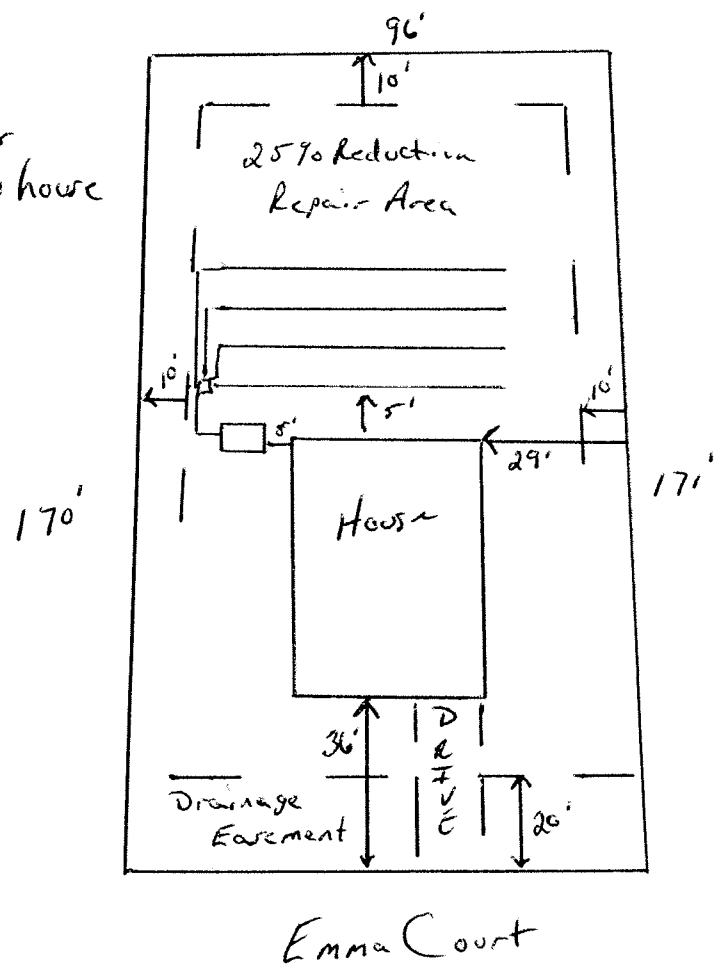 96'
10'
25% Reduction
Repair Area
house
10'
5'
10'
5'
29'
170'
171'
House
36'
DRIVE
Drainage
Easement
20'
Emma Court